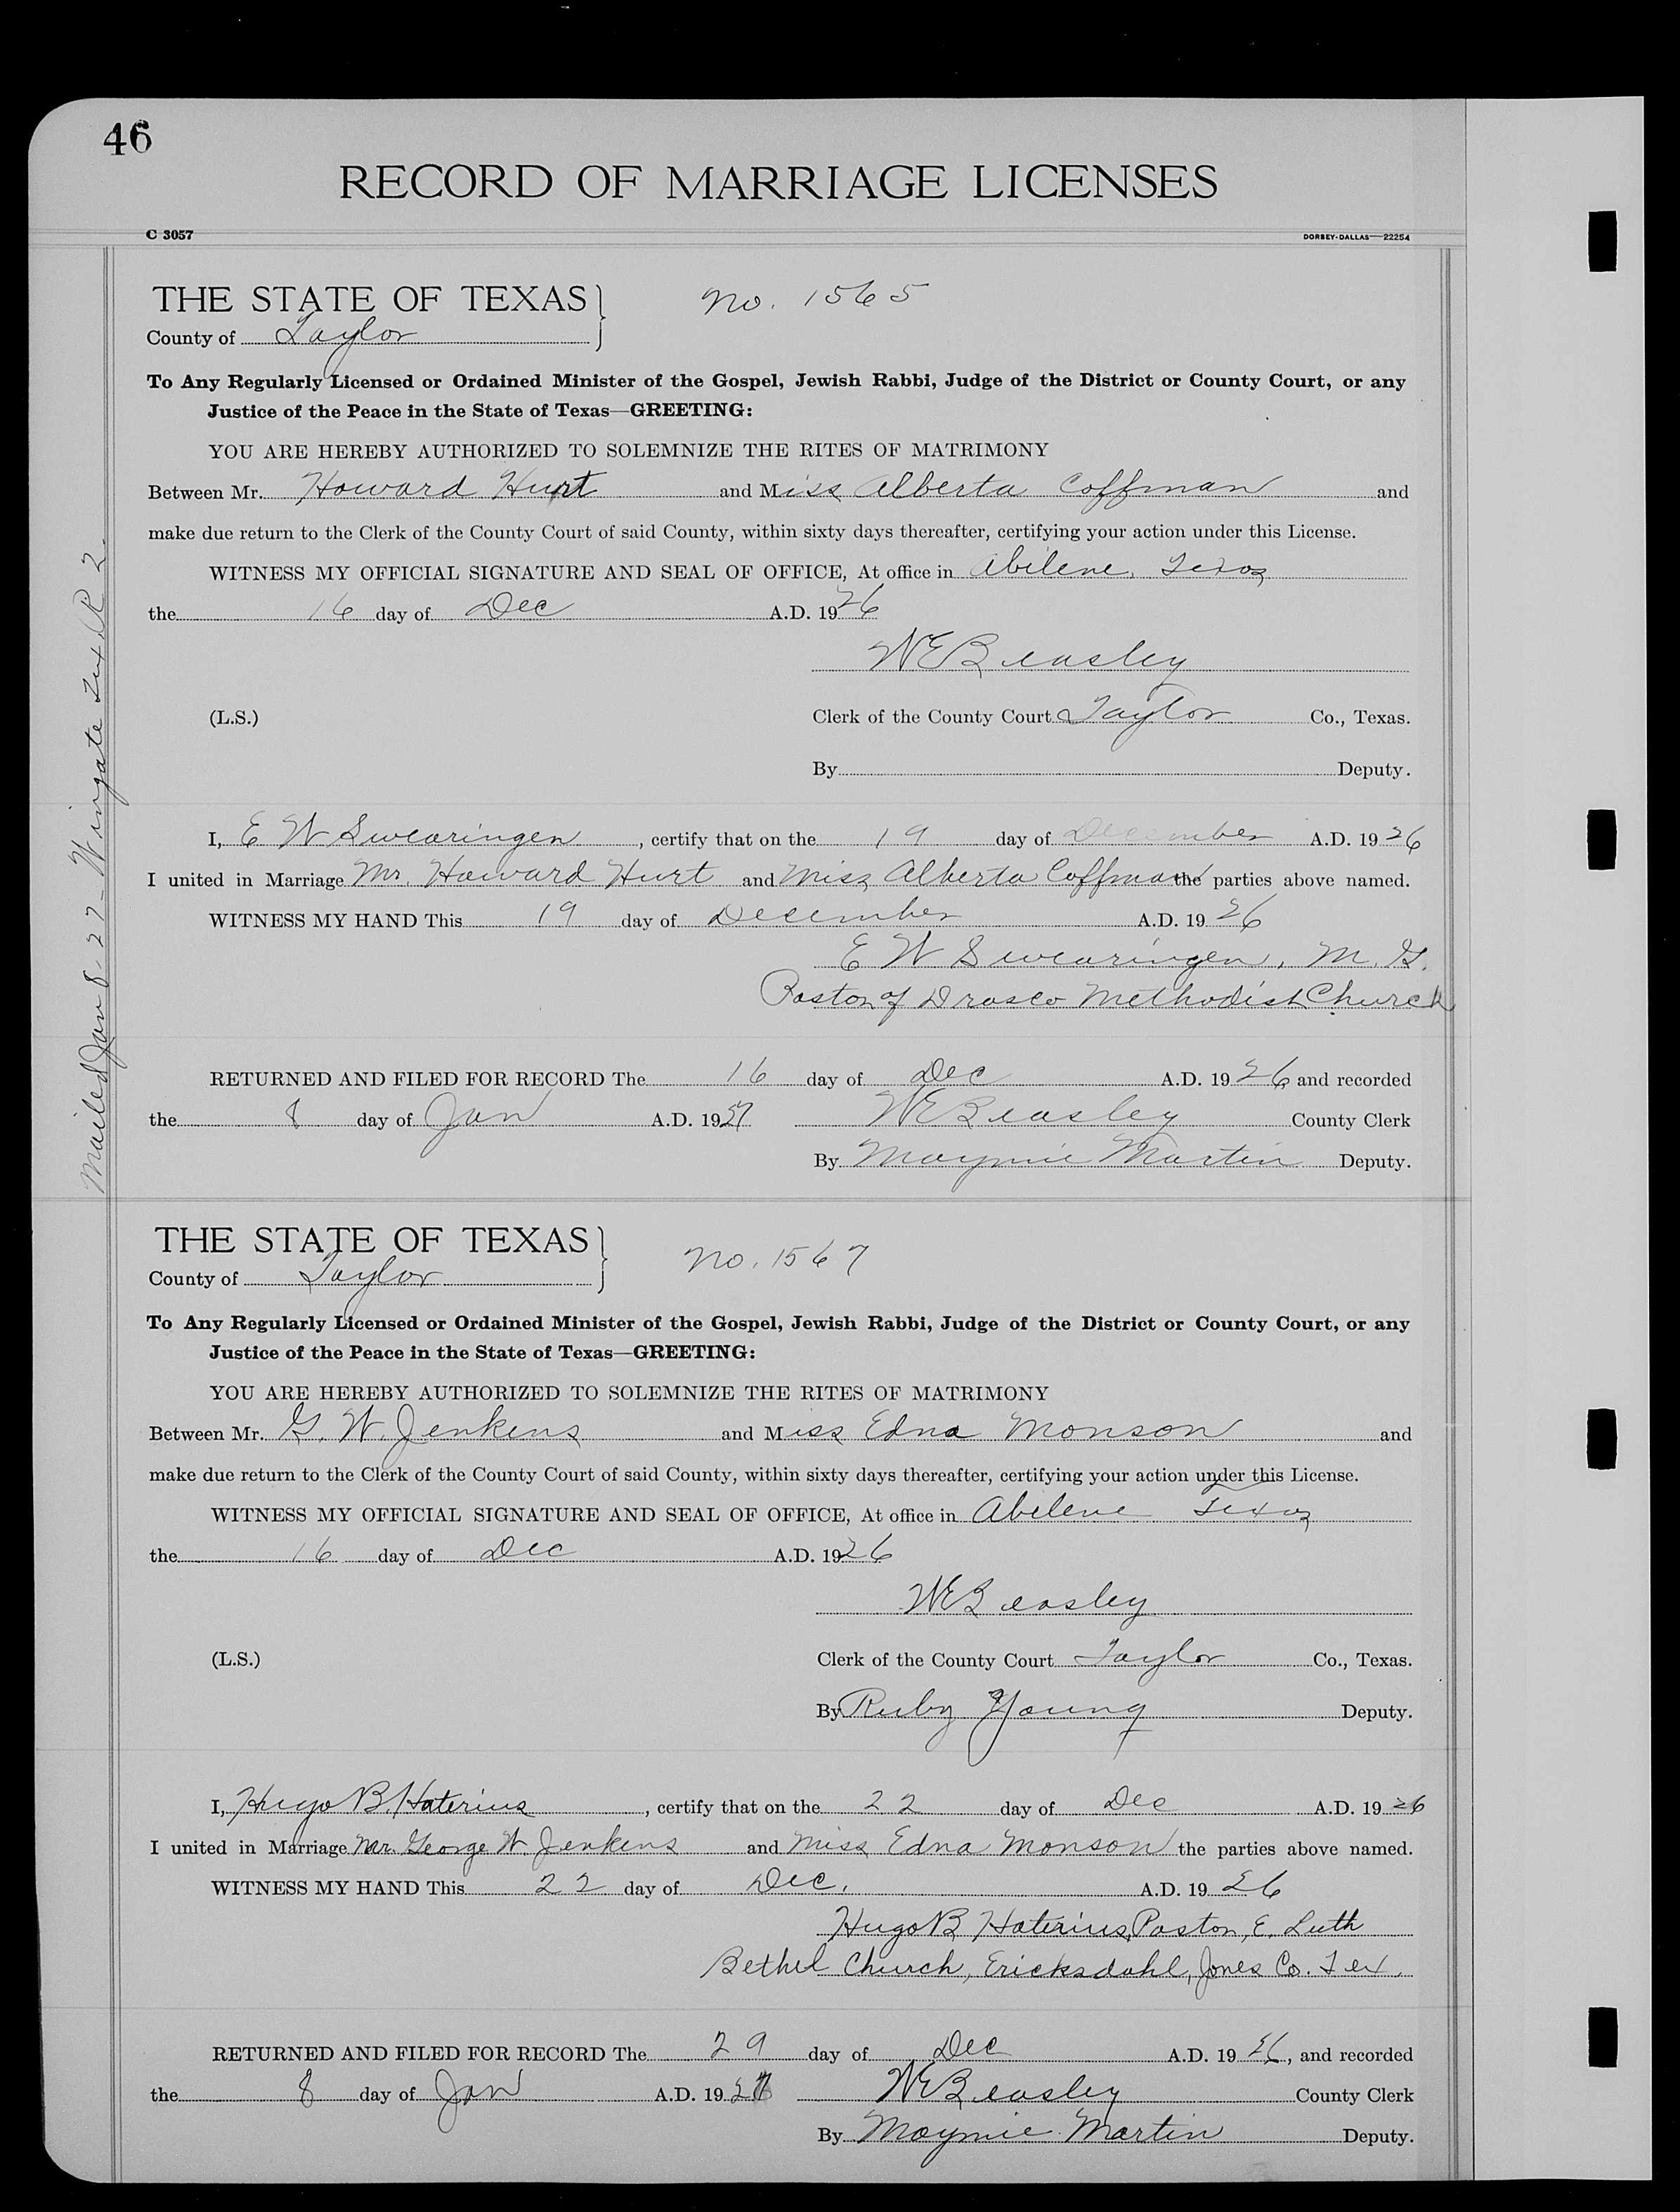 46
RECORD OF MARRIAGE LICENSES
C 3057
DORSEY-DALLAS—22254
THE STATE OF TEXAS
No. 1565
County of Taylor
To Any Regularly Licensed or Ordained Minister of the Gospel, Jewish Rabbi, Judge of the District or County Court, or any
Justice of the Peace in the State of Texas—GREETING:
YOU ARE HEREBY AUTHORIZED TO SOLEMNIZE THE RITES OF MATRIMONY
Between Mr. Howard Hurt and Miss Alberta Coffman and
make due return to the Clerk of the County Court of said County, within sixty days thereafter, certifying your action under this License.
WITNESS MY OFFICIAL SIGNATURE AND SEAL OF OFFICE, At office in Abilene, Texas
the 16 day of Dec A.D. 1926
W E Beasley
(L.S.) Clerk of the County Court Taylor Co., Texas.
By Deputy.
I, E W Swearingen, certify that on the 19 day of December A.D. 1926
I united in Marriage Mr. Howard Hurt and Miss Alberta Coffman the parties above named.
WITNESS MY HAND This 19 day of December A.D. 1926
E W Swearingen, M. G.
Pastor of Drasco Methodist Church
RETURNED AND FILED FOR RECORD The 16 day of Dec A.D. 1926 and recorded
the 8 day of Jan A.D. 1927 W E Beasley County Clerk
By Maymie Martin Deputy.
Mailed Jan 8-27-Wingate Tex R 2.
THE STATE OF TEXAS
No. 1567
County of Taylor
To Any Regularly Licensed or Ordained Minister of the Gospel, Jewish Rabbi, Judge of the District or County Court, or any
Justice of the Peace in the State of Texas—GREETING:
YOU ARE HEREBY AUTHORIZED TO SOLEMNIZE THE RITES OF MATRIMONY
Between Mr. G. W. Jenkins and Miss Edna Monson and
make due return to the Clerk of the County Court of said County, within sixty days thereafter, certifying your action under this License.
WITNESS MY OFFICIAL SIGNATURE AND SEAL OF OFFICE, At office in Abilene Texas
the 16 day of Dec A.D. 1926
W E Beasley
(L.S.) Clerk of the County Court Taylor Co., Texas.
By Ruby Young Deputy.
I, Hugo B. Haterius, certify that on the 22 day of Dec A.D. 1926
I united in Marriage Mr. George W. Jenkins and Miss Edna Monson the parties above named.
WITNESS MY HAND This 22 day of Dec. A.D. 1926
Hugo B Haterius, Pastor, E. Luth
Bethel Church, Ericksdahl, Jones Co. Tex.
RETURNED AND FILED FOR RECORD The 29 day of Dec A.D. 1926, and recorded
the 8 day of Jan A.D. 1927 W E Beasley County Clerk
By Maymie Martin Deputy.